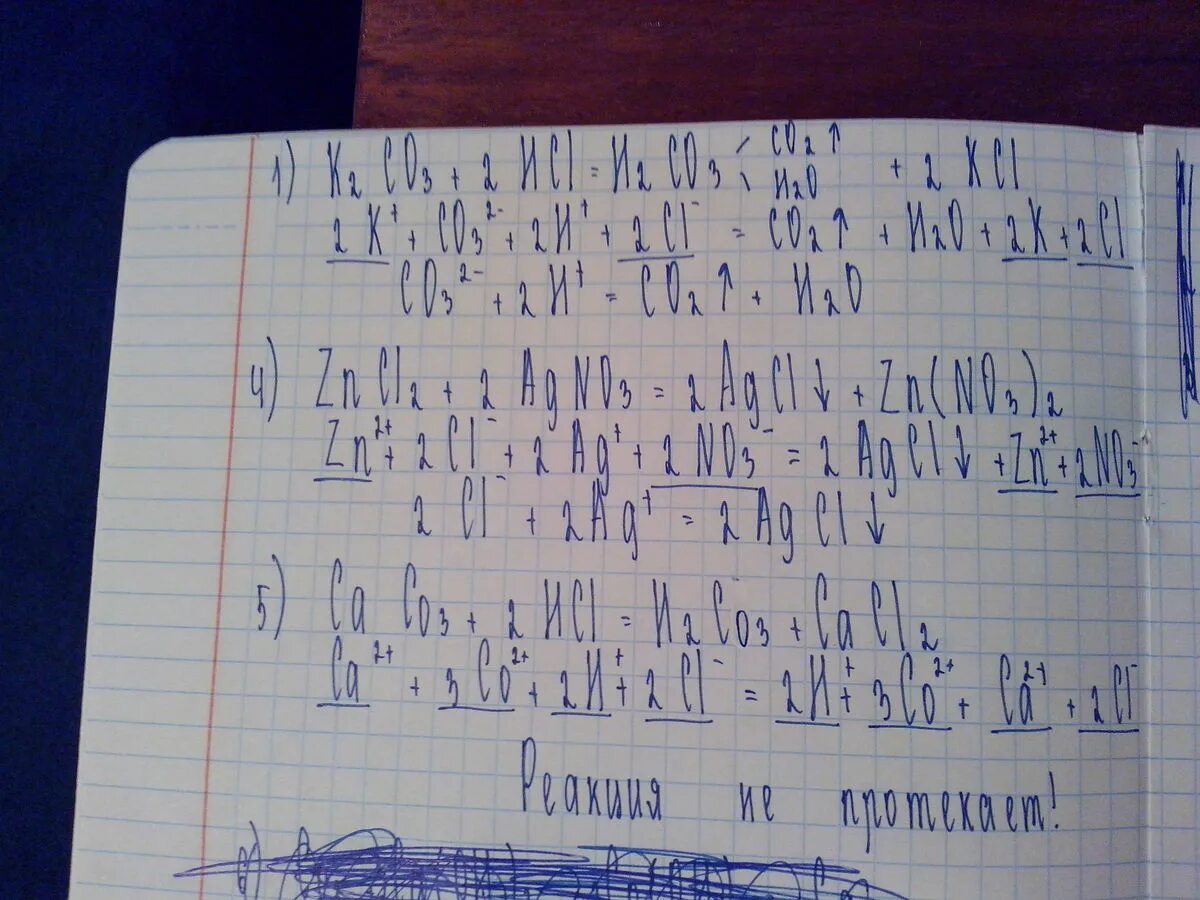 1) K₂CO₃ + 2HCl = H₂CO₃ < CO₂↑ H₂O + 2KCl
2K⁺ + CO₃²⁻ + 2H⁺ + 2Cl⁻ = CO₂↑ + H₂O + 2K + 2Cl
CO₃²⁻ + 2H⁺ = CO₂↑ + H₂O
4) ZnCl₂ + 2AgNO₃ = 2AgCl↓ + Zn(NO₃)₂
Zn²⁺ + 2Cl⁻ + 2Ag⁺ + 2NO₃⁻ = 2AgCl↓ + Zn²⁺ + 2NO₃⁻
2Cl⁻ + 2Ag⁺ = 2AgCl↓
5) CaCo₃ + 2HCl = H₂Co₃ + CaCl₂
Ca²⁺ + 3Co²⁺ + 2H⁺ + 2Cl⁻ = 2H⁺ + 3Co²⁺ + Ca²⁺ + 2Cl⁻
Реакция не протекает!
6)